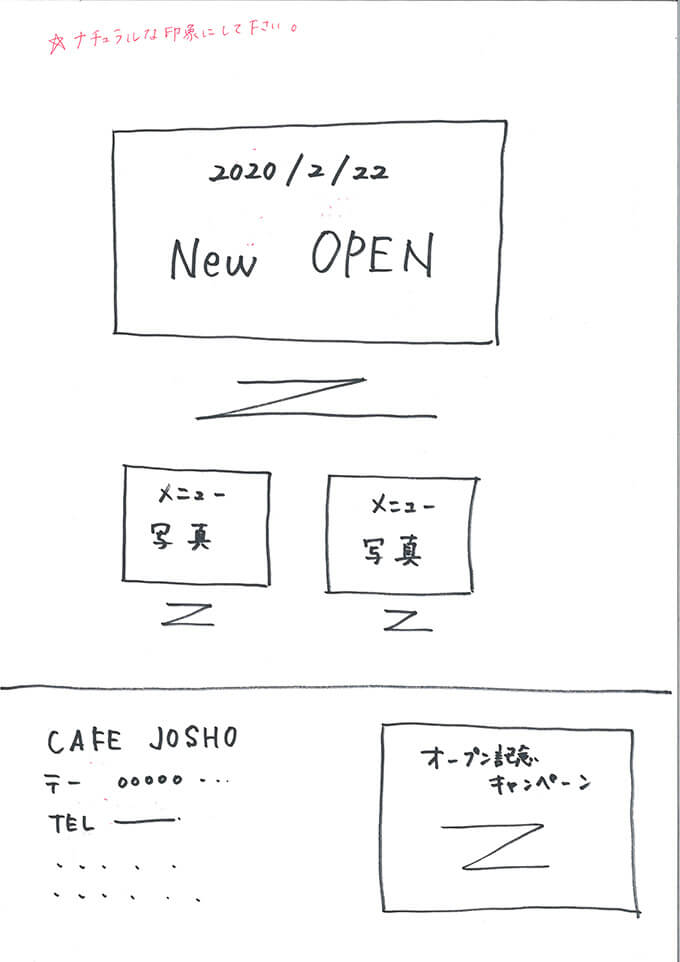 ☆ナチュラルな印象にして下さい。
2020/2/22
New OPEN
メニュー
写真
メニュー
写真
CAFE JOSHO
〒ー ooooo ...
TEL
オープン記念
キャンペーン